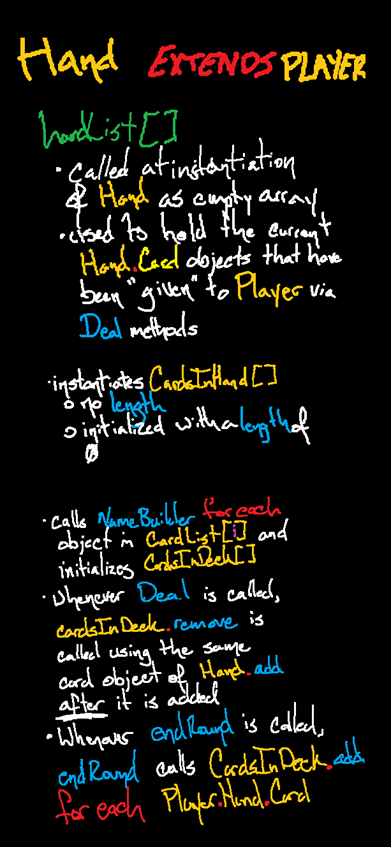 Hand EXTENDS PLAYER
handList[]
• Called at instantiation
of Hand as empty array
• Used to hold the current
Hand.Card objects that have
been "given" to Player via
Deal methods
• instantiates CardsInHand[]
o no length
o initialized with a length of
0
• calls NameBuilder for each
object in CardList[i] and
initializes CardsInDeck[]
• Whenever Deal is called,
cardsInDeck.remove is
called using the same
card object of Hand.add
after it is added
• Whenever endRound is called,
endRound calls CardsInDeck.add
for each Player.Hand.Card